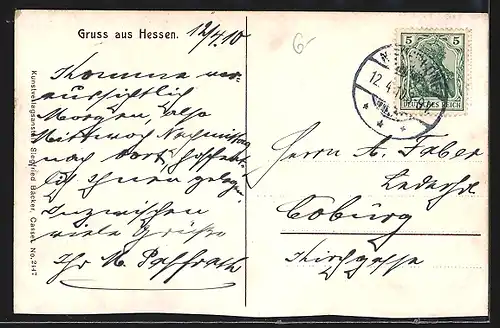 Gruss aus Hessen.
12/4.10
6-
Komme vor-
aussichtlich
Morgen, also
Mittwoch Nachmittag
nach dort, hoffent-
lich Ihnen gelegen.
Inzwischen
viele Grüße
Ihr M. Paffrath
Kunstverlagsanstalt Siegfried Bäcker, Cassel. No. 2147
5 5
DEUTSCHES REICH
12.4.10
Herrn A. Faber
Lederhdl.
Coburg
Kirchgasse